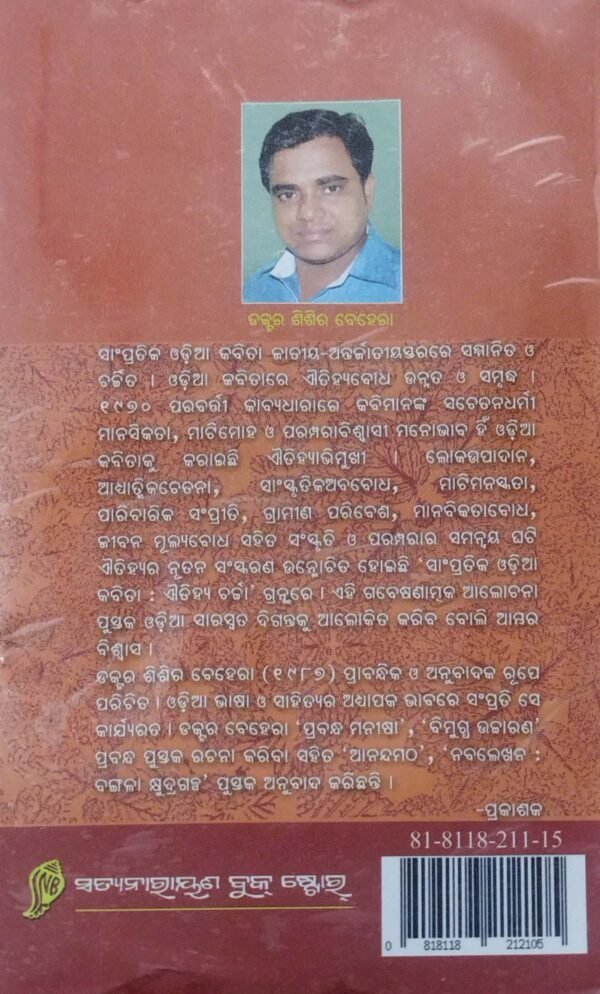 ଡକ୍ଟର ଶିଶିର ବେହେରା
ସାଂପ୍ରତିକ ଓଡ଼ିଆ କବିତା ଜାତୀୟ-ଅନ୍ତର୍ଜାତୀୟସ୍ତରରେ ସମ୍ମାନିତ ଓ
ଚର୍ଚ୍ଚିତ । ଓଡ଼ିଆ କବିତାରେ ଐତିହ୍ୟବୋଧ ଉନ୍ନତ ଓ ସମୃଦ୍ଧ ।
୧୯୭୦ ପରବର୍ତ୍ତୀ କାବ୍ୟଧାରାରେ କବିମାନଙ୍କ ସଚେତନଧର୍ମୀ
ମାନସିକତା, ମାଟିମୋହ ଓ ପରମ୍ପରାବିଶ୍ୱାସୀ ମନୋଭାବ ହିଁ ଓଡ଼ିଆ
କବିତାକୁ କରାଇଛି ଐତିହ୍ୟାଭିମୁଖୀ । ଲୋକଉପାଦାନ,
ଆଧ୍ୟାତ୍ମିକଚେତନା, ସାଂସ୍କୃତିକଅବବୋଧ, ମାଟିମନସ୍କତା,
ପାରିବାରିକ ସଂପ୍ରୀତି, ଗ୍ରାମୀଣ ପରିବେଶ, ମାନବିକତାବୋଧ,
ଜୀବନ ମୂଲ୍ୟବୋଧ ସହିତ ସଂସ୍କୃତି ଓ ପରମ୍ପରାର ସମନ୍ୱୟ ଘଟି
ଐତିହ୍ୟର ନୂତନ ସଂସ୍କରଣ ଉନ୍ମୋଚିତ ହୋଇଛି ‘ସାଂପ୍ରତିକ ଓଡ଼ିଆ
କବିତା : ଐତିହ୍ୟ ଚର୍ଚ୍ଚା’ ଗ୍ରନ୍ଥରେ । ଏହି ଗବେଷଣାତ୍ମକ ଆଲୋଚନା
ପୁସ୍ତକ ଓଡ଼ିଆ ସାରସ୍ୱତ ଦିଗନ୍ତକୁ ଆଲୋକିତ କରିବ ବୋଲି ଆମ୍ଭର
ବିଶ୍ୱାସ ।
ଡକ୍ଟର ଶିଶିର ବେହେରା (୧୯୮୭) ପ୍ରାବନ୍ଧିକ ଓ ଅନୁବାଦକ ରୂପେ
ପରିଚିତ । ଓଡ଼ିଆ ଭାଷା ଓ ସାହିତ୍ୟର ଅଧ୍ୟାପକ ଭାବରେ ସଂପ୍ରତି ସେ
କାର୍ଯ୍ୟରତ । ଡକ୍ଟର ବେହେରା ‘ପ୍ରବନ୍ଧ ମନୀଷା’, ‘ବିମୁଗ୍ଧ ଉଚ୍ଚାରଣ’
ପ୍ରବନ୍ଧ ପୁସ୍ତକ ରଚନା କରିବା ସହିତ ‘ଆନନ୍ଦମଠ’, ‘ନବଲେଖକ :
ବଙ୍ଗଳା କ୍ଷୁଦ୍ରଗଳ୍ପ’ ପୁସ୍ତକ ଅନୁବାଦ କରିଛନ୍ତି ।
-ପ୍ରକାଶକ
81-8118-211-15
SNB ସତ୍ୟନାରାୟଣ ବୁକ୍ ଷ୍ଟୋର୍
0 818118 212105